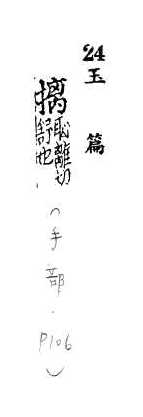 24 玉篇
摛恥離切
舒也
(手部.P106)